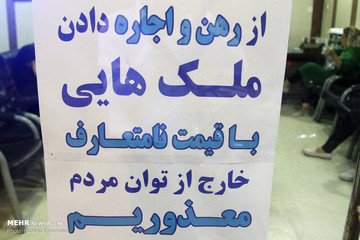 از رهن و اجاره دادن
ملک هایی
با قیمت نامتعارف
خارج از توان مردم
معذوریم
MEHR